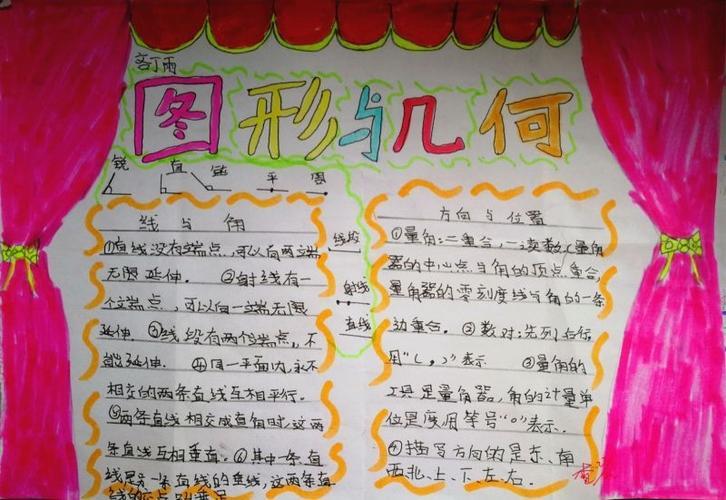 丁雨
图形与几何
锐 直 钝 平 周
线与角
①直线没有端点,可以向两端
无限延伸。②射线有一
个端点,可以向一端无限
延伸。③线段有两个端点,不
能延伸。④同一平面内,永不
相交的两条直线互相平行。
⑤两条直线相交成直角时,这两
条直线互相垂直。⑥其中一条直
线是另一条直线的垂线,这两条直
线的
线段
射线
直线
方向与位置
①量角:二重合,一读数(量角
器的中心点与角的顶点重合,
量角器的零刻度线与角的一条
边重合。②数对:先列后行,
用“( , )”表示 ③量角的
工具是量角器,角的计量单
位是度用符号“°”表示.
④描写方向的是东、南
西北、上、下、左、右.